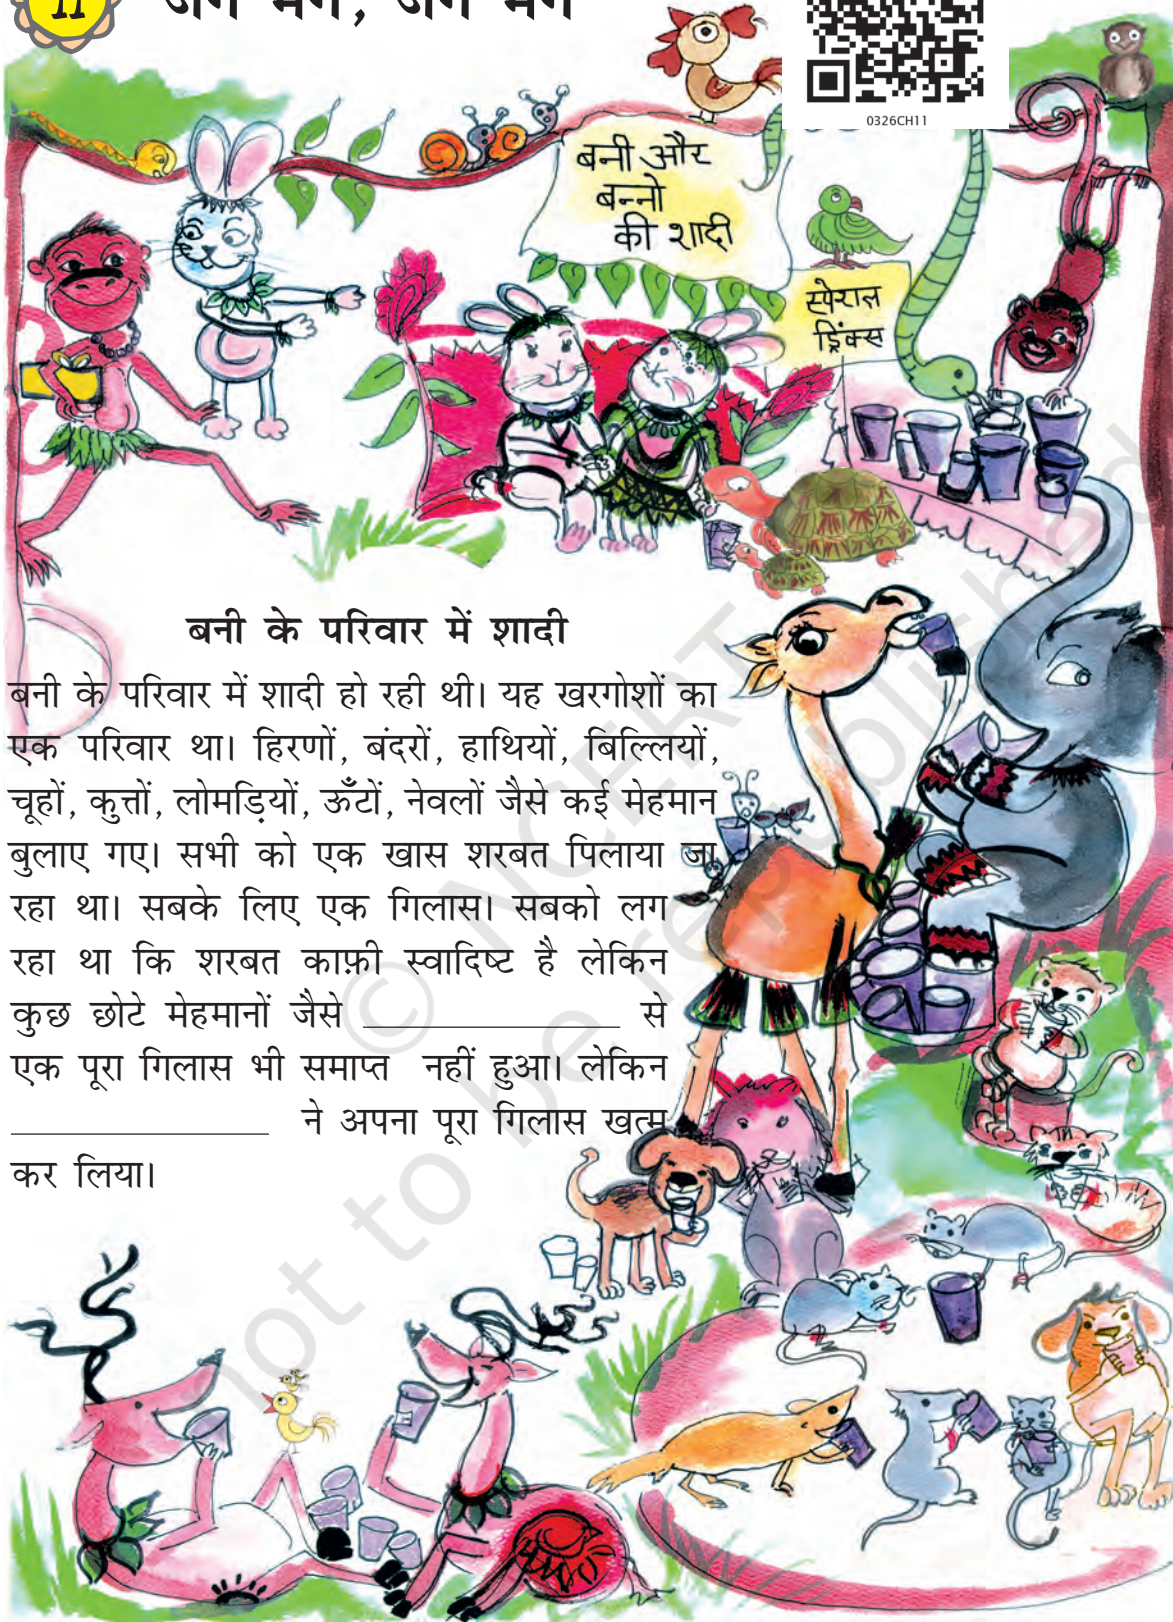 11
जग मग, जग मग
0326CH11
बनी और
बन्नो
की शादी
स्पेशल
ड्रिंक्स
बनी के परिवार में शादी
बनी के परिवार में शादी हो रही थी। यह खरगोशों का
एक परिवार था। हिरणों, बंदरों, हाथियों, बिल्लियों,
चूहों, कुत्तों, लोमड़ियों, ऊँटों, नेवलों जैसे कई मेहमान
बुलाए गए। सभी को एक खास शरबत पिलाया जा
रहा था। सबके लिए एक गिलास। सबको लग
रहा था कि शरबत काफ़ी स्वादिष्ट है लेकिन
कुछ छोटे मेहमानों जैसे ________________ से
एक पूरा गिलास भी समाप्त नहीं हुआ। लेकिन
________________ ने अपना पूरा गिलास खत्म
कर लिया।
© NCERT
not to be republished